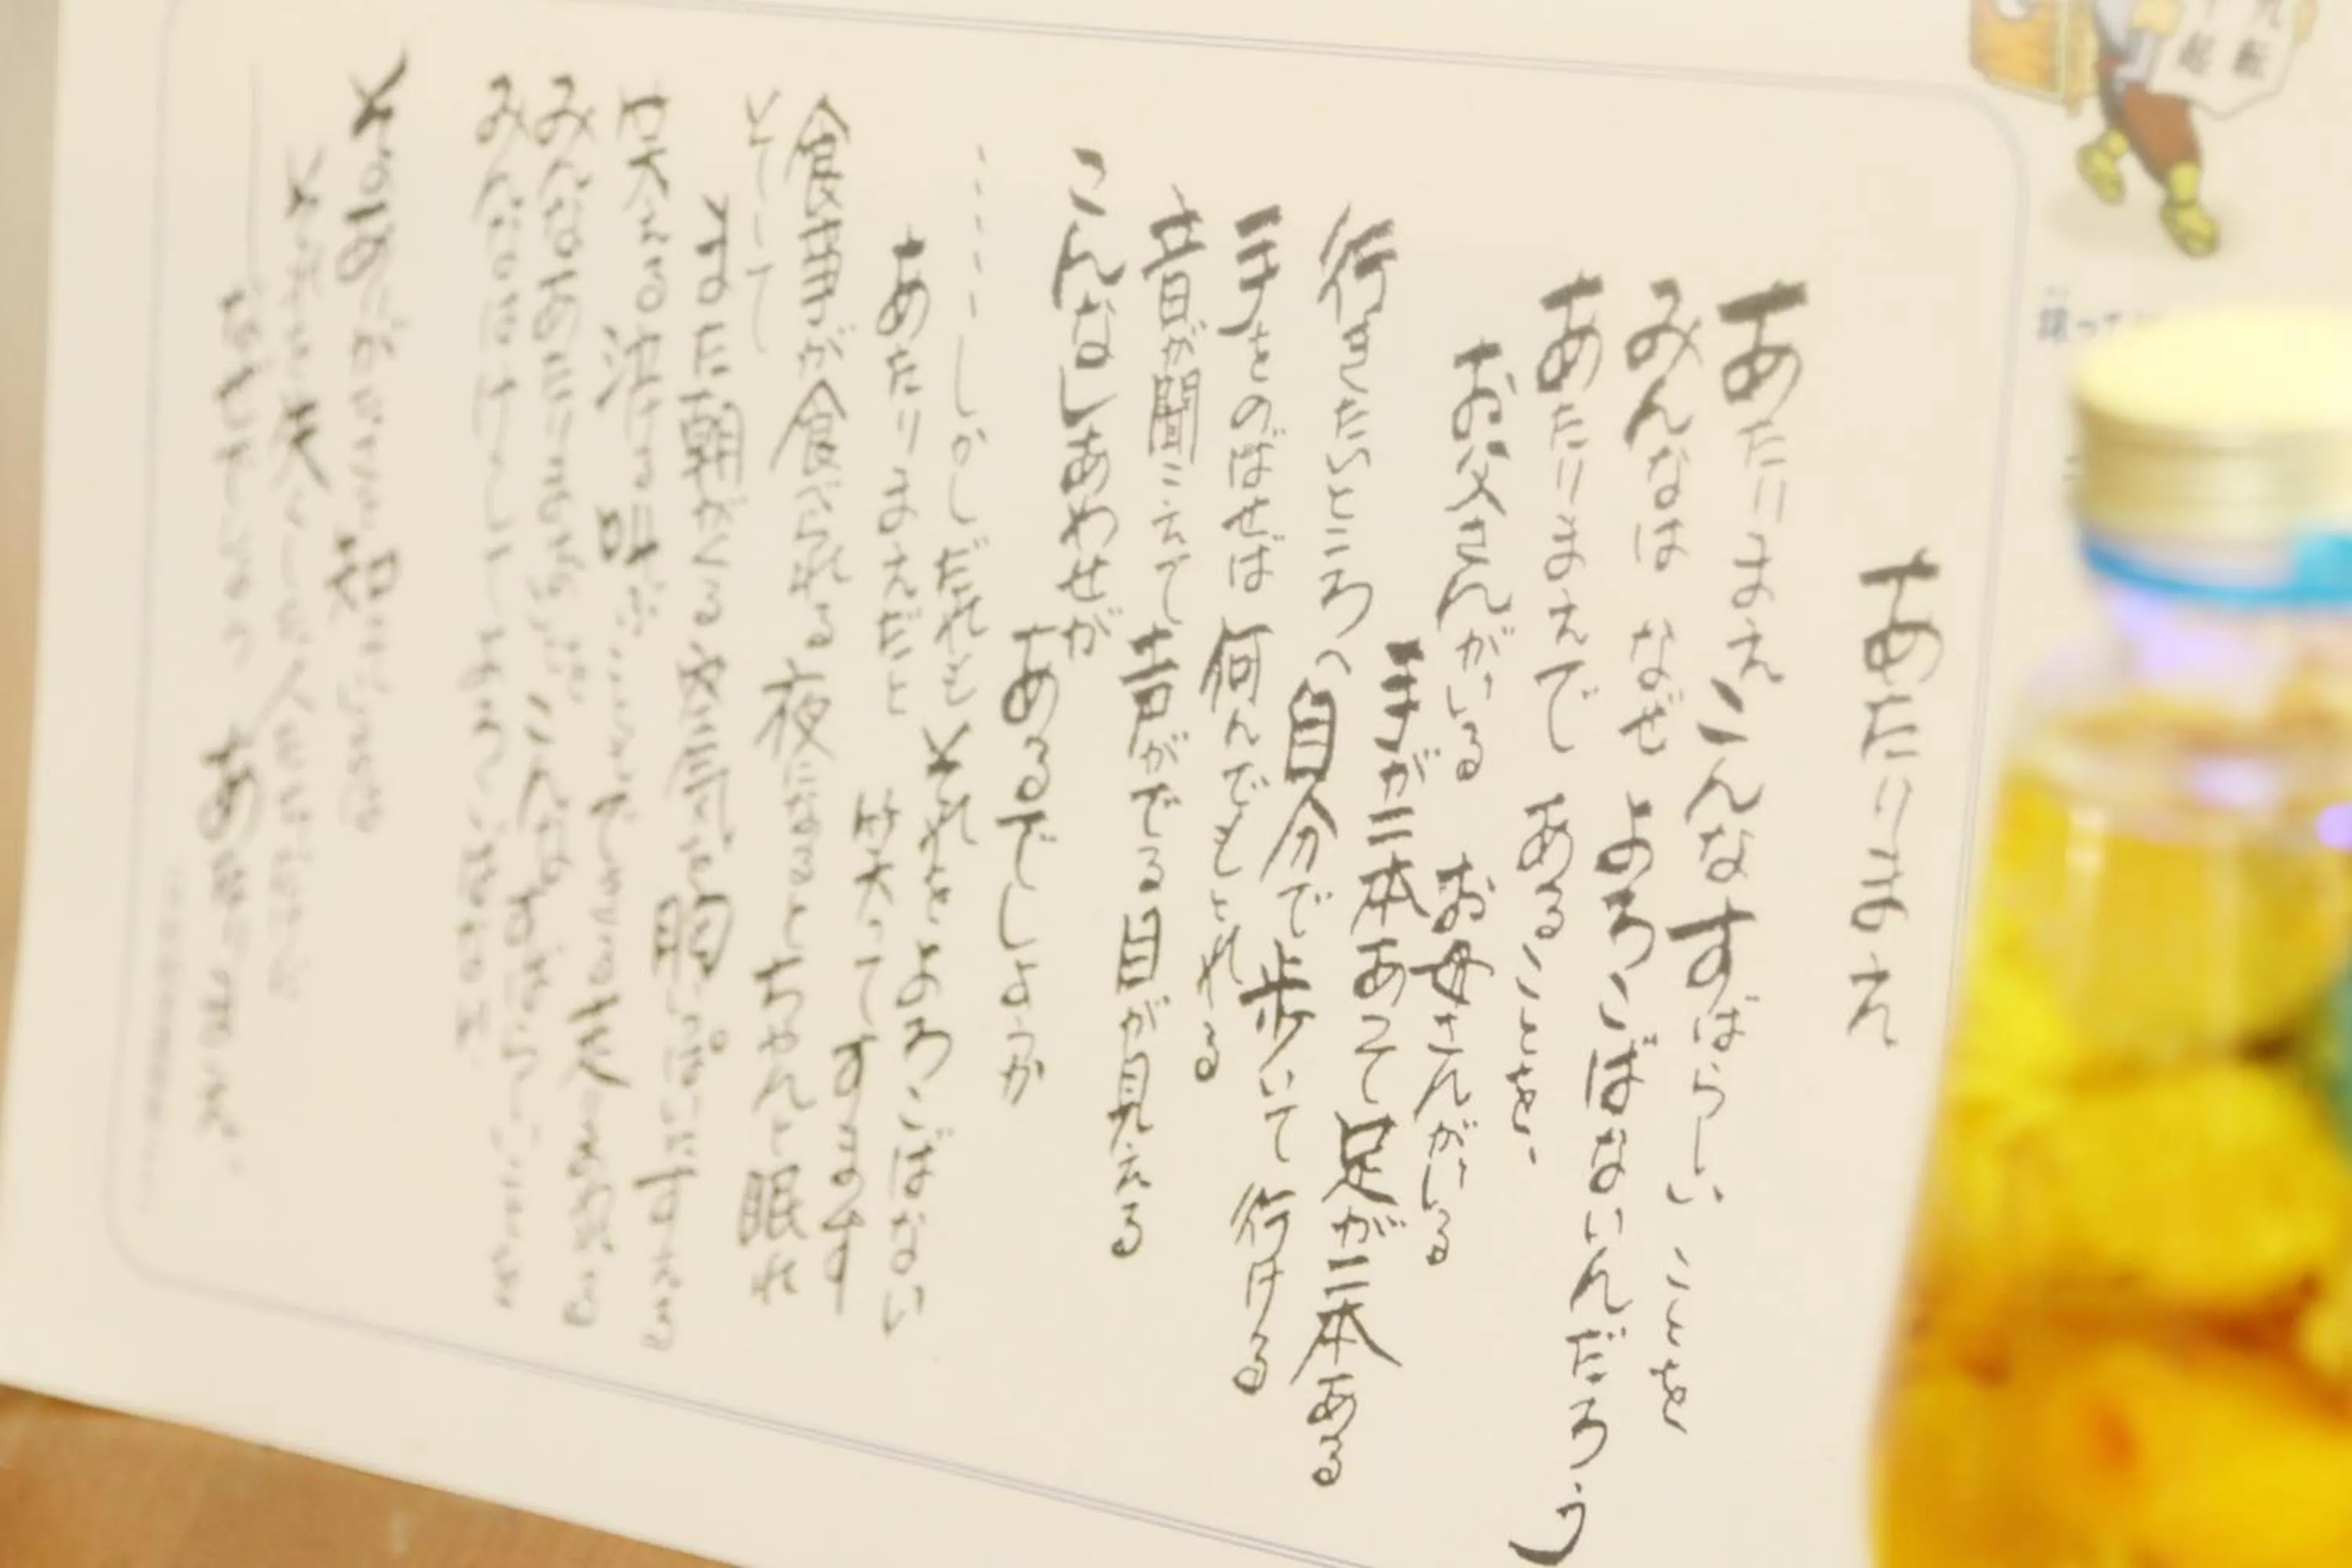 あたりまえ
あたりまえ こんなすばらしい ことを
みんなは なぜ よろこばないんだろう
あたりまえで あることを、
お父さんがいる お母さんがいる
手が二本あって 足が二本ある
行きたいところへ自分で歩いて 行ける
手をのばせば 何んでもとれる
音が聞こえて 声がでる 目が見える
こんなしあわせが
あるでしょうか
しかしだれも それをよろこばない
あたりまえだと 笑ってすます
食事が食べられる 夜になるとちゃんと眠れ
そして
また朝がくる 空気を胸いっぱいにすえる
笑える 泣ける 叫ぶこともできる 走りまわれる
みんなあたりまえの こんなすばらしいことを
みんなはけっしてよろこばない
そのありがたさを知っているのは
それを失くした人たちだけ
なぜでしょう あたりまえ